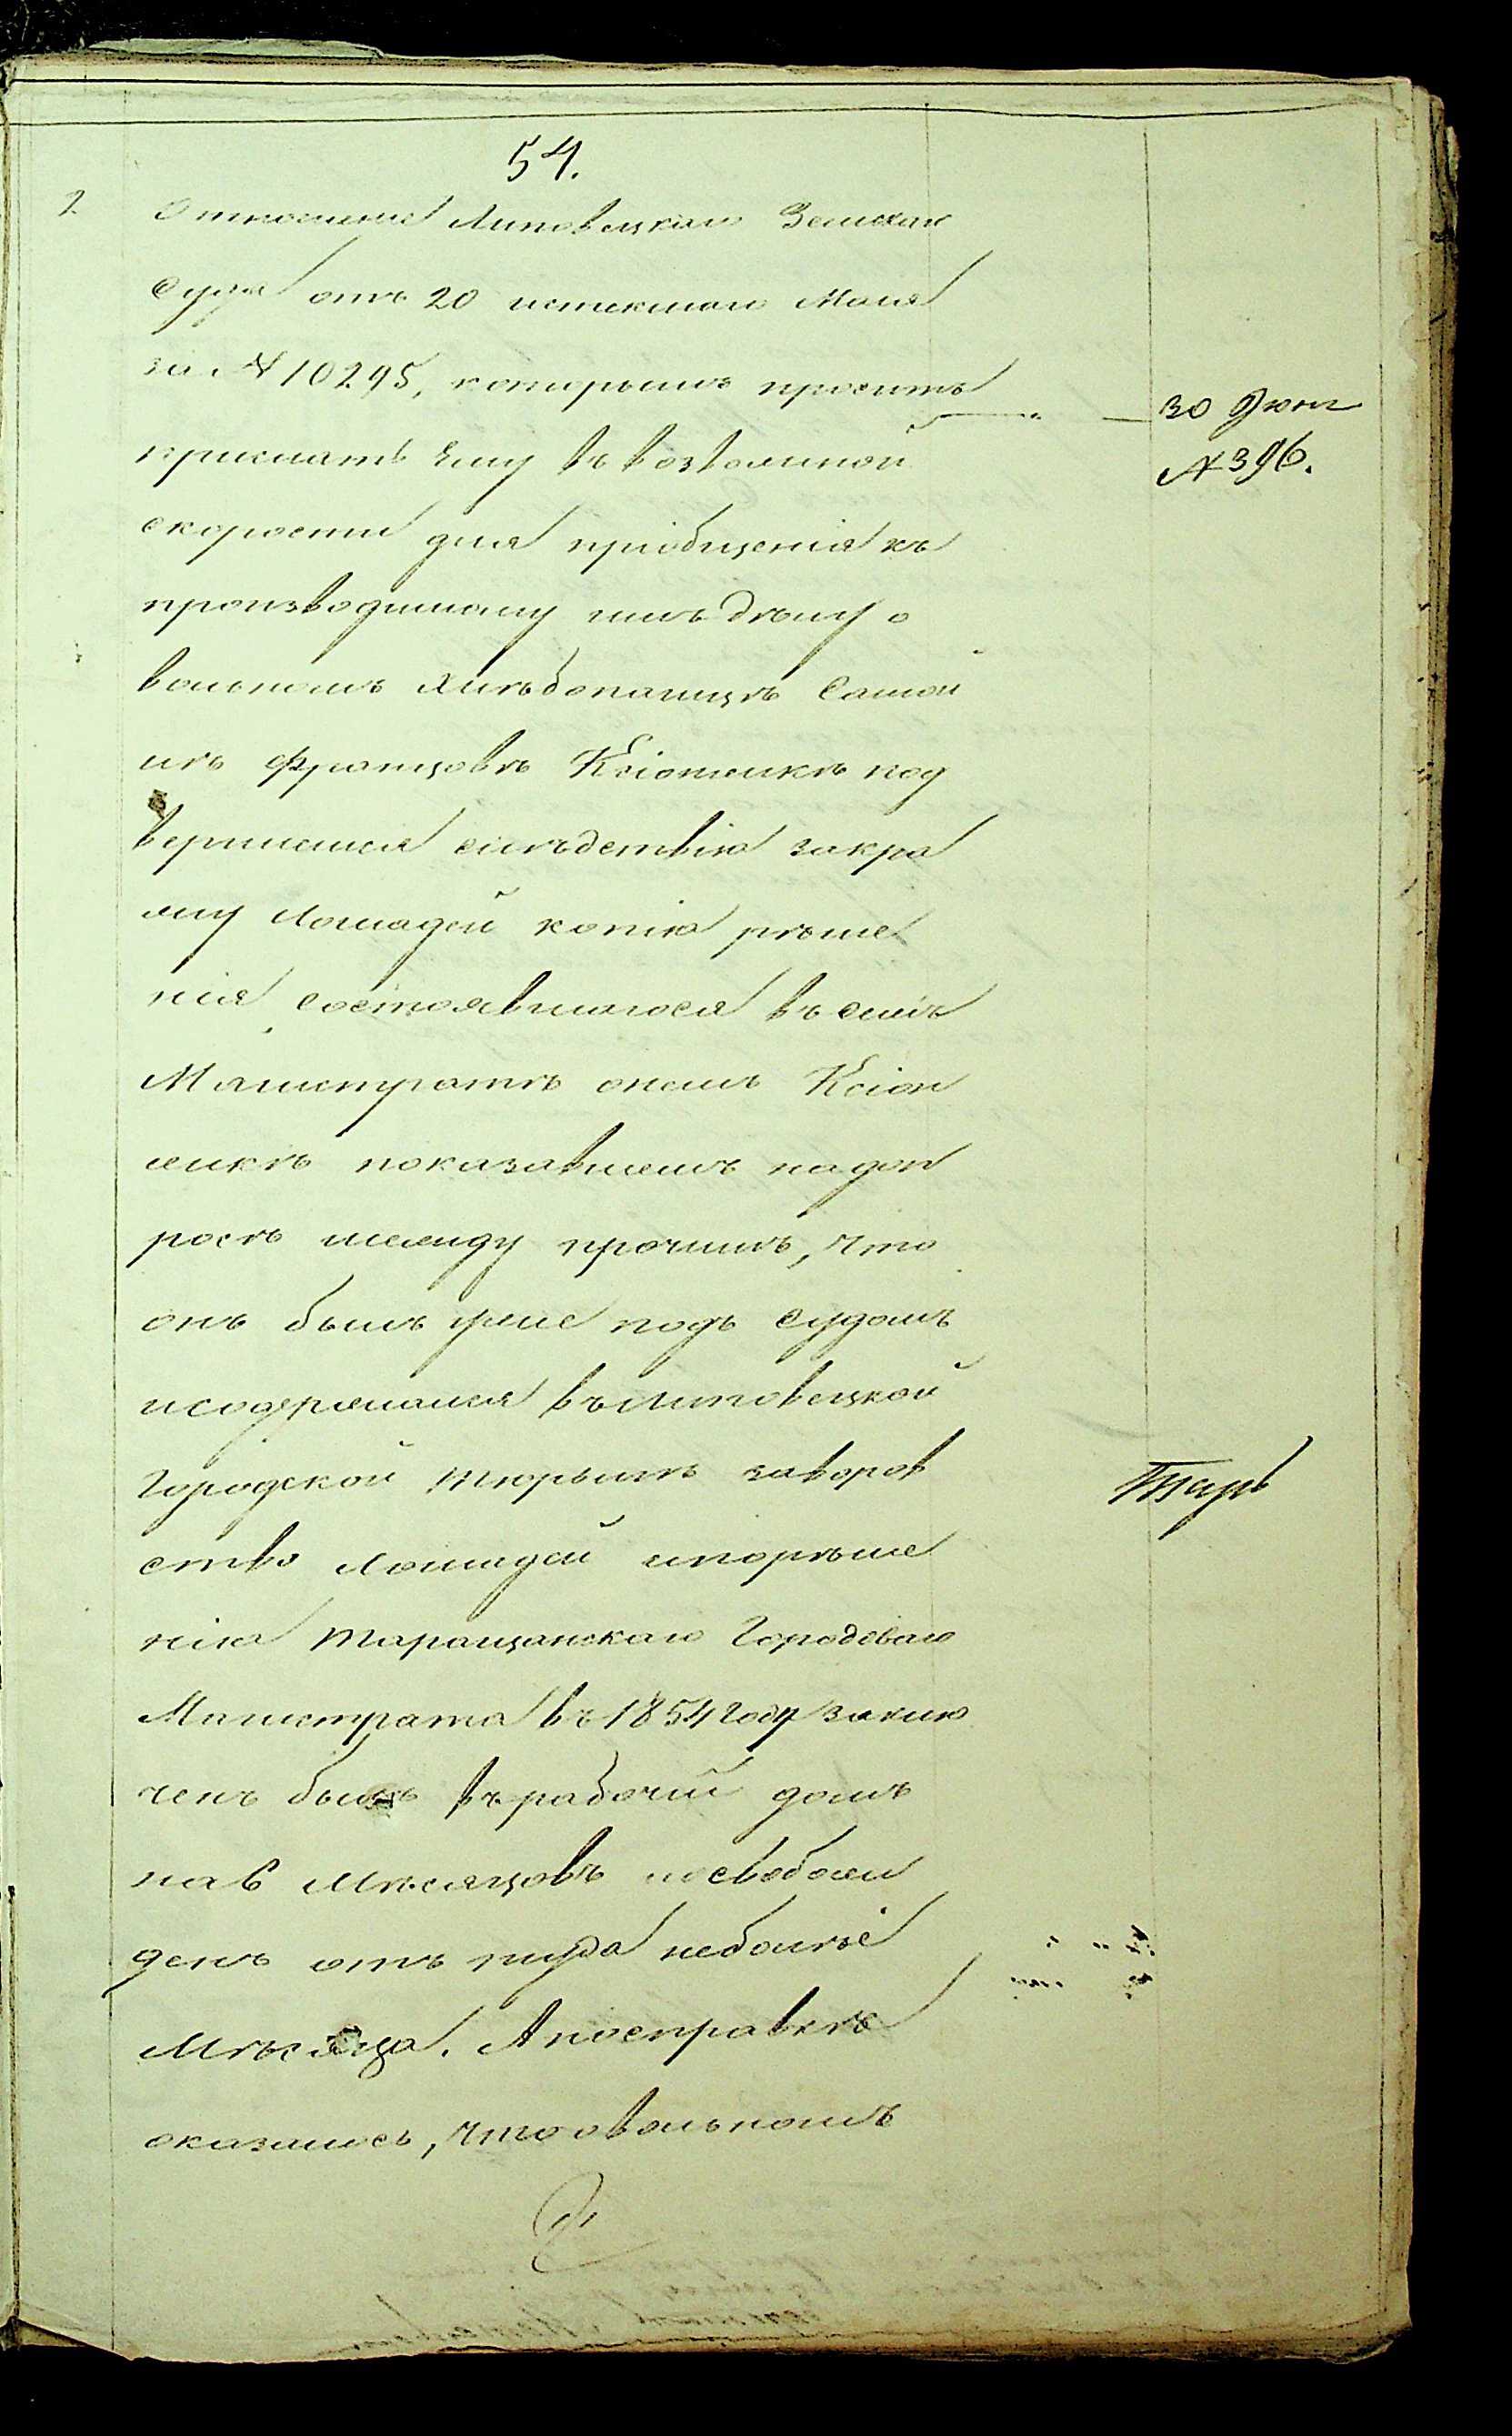 54.
2. Отношение Липовецкаго Земскаго
Суда отъ 20 истекшаго Маія
за № 10295, которымъ проситъ
30 Іюня
прислать Ему въ возможной
№ 396.
скорости для пріобщенія къ
производимому имъ дѣлу о
вольномъ хлѣбопашцѣ Самой
лѣ Францовѣ Ксіонжикѣ под
вергшемся слѣдствію за кра
жу лошадей копію рѣше
нія, состоявшагося въ семъ
Магистратѣ о немъ Ксіон
жикѣ показавшемъ на доп
росѣ между прочимъ, что
онъ былъ уже подъ судомъ
и содержался въ Липовецкой
Городской тюрьмѣ за воров
ство лошадей и по рѣше
нію Таращанскаго Городоваго
Магистрата въ 1854 году заклю
ченъ былъ въ рабочій домъ
на 6 мѣсяцовъ и освобож
денъ отъ туда не болѣе
мѣсяца. А по справкѣ
оказалось, что о вольномъ